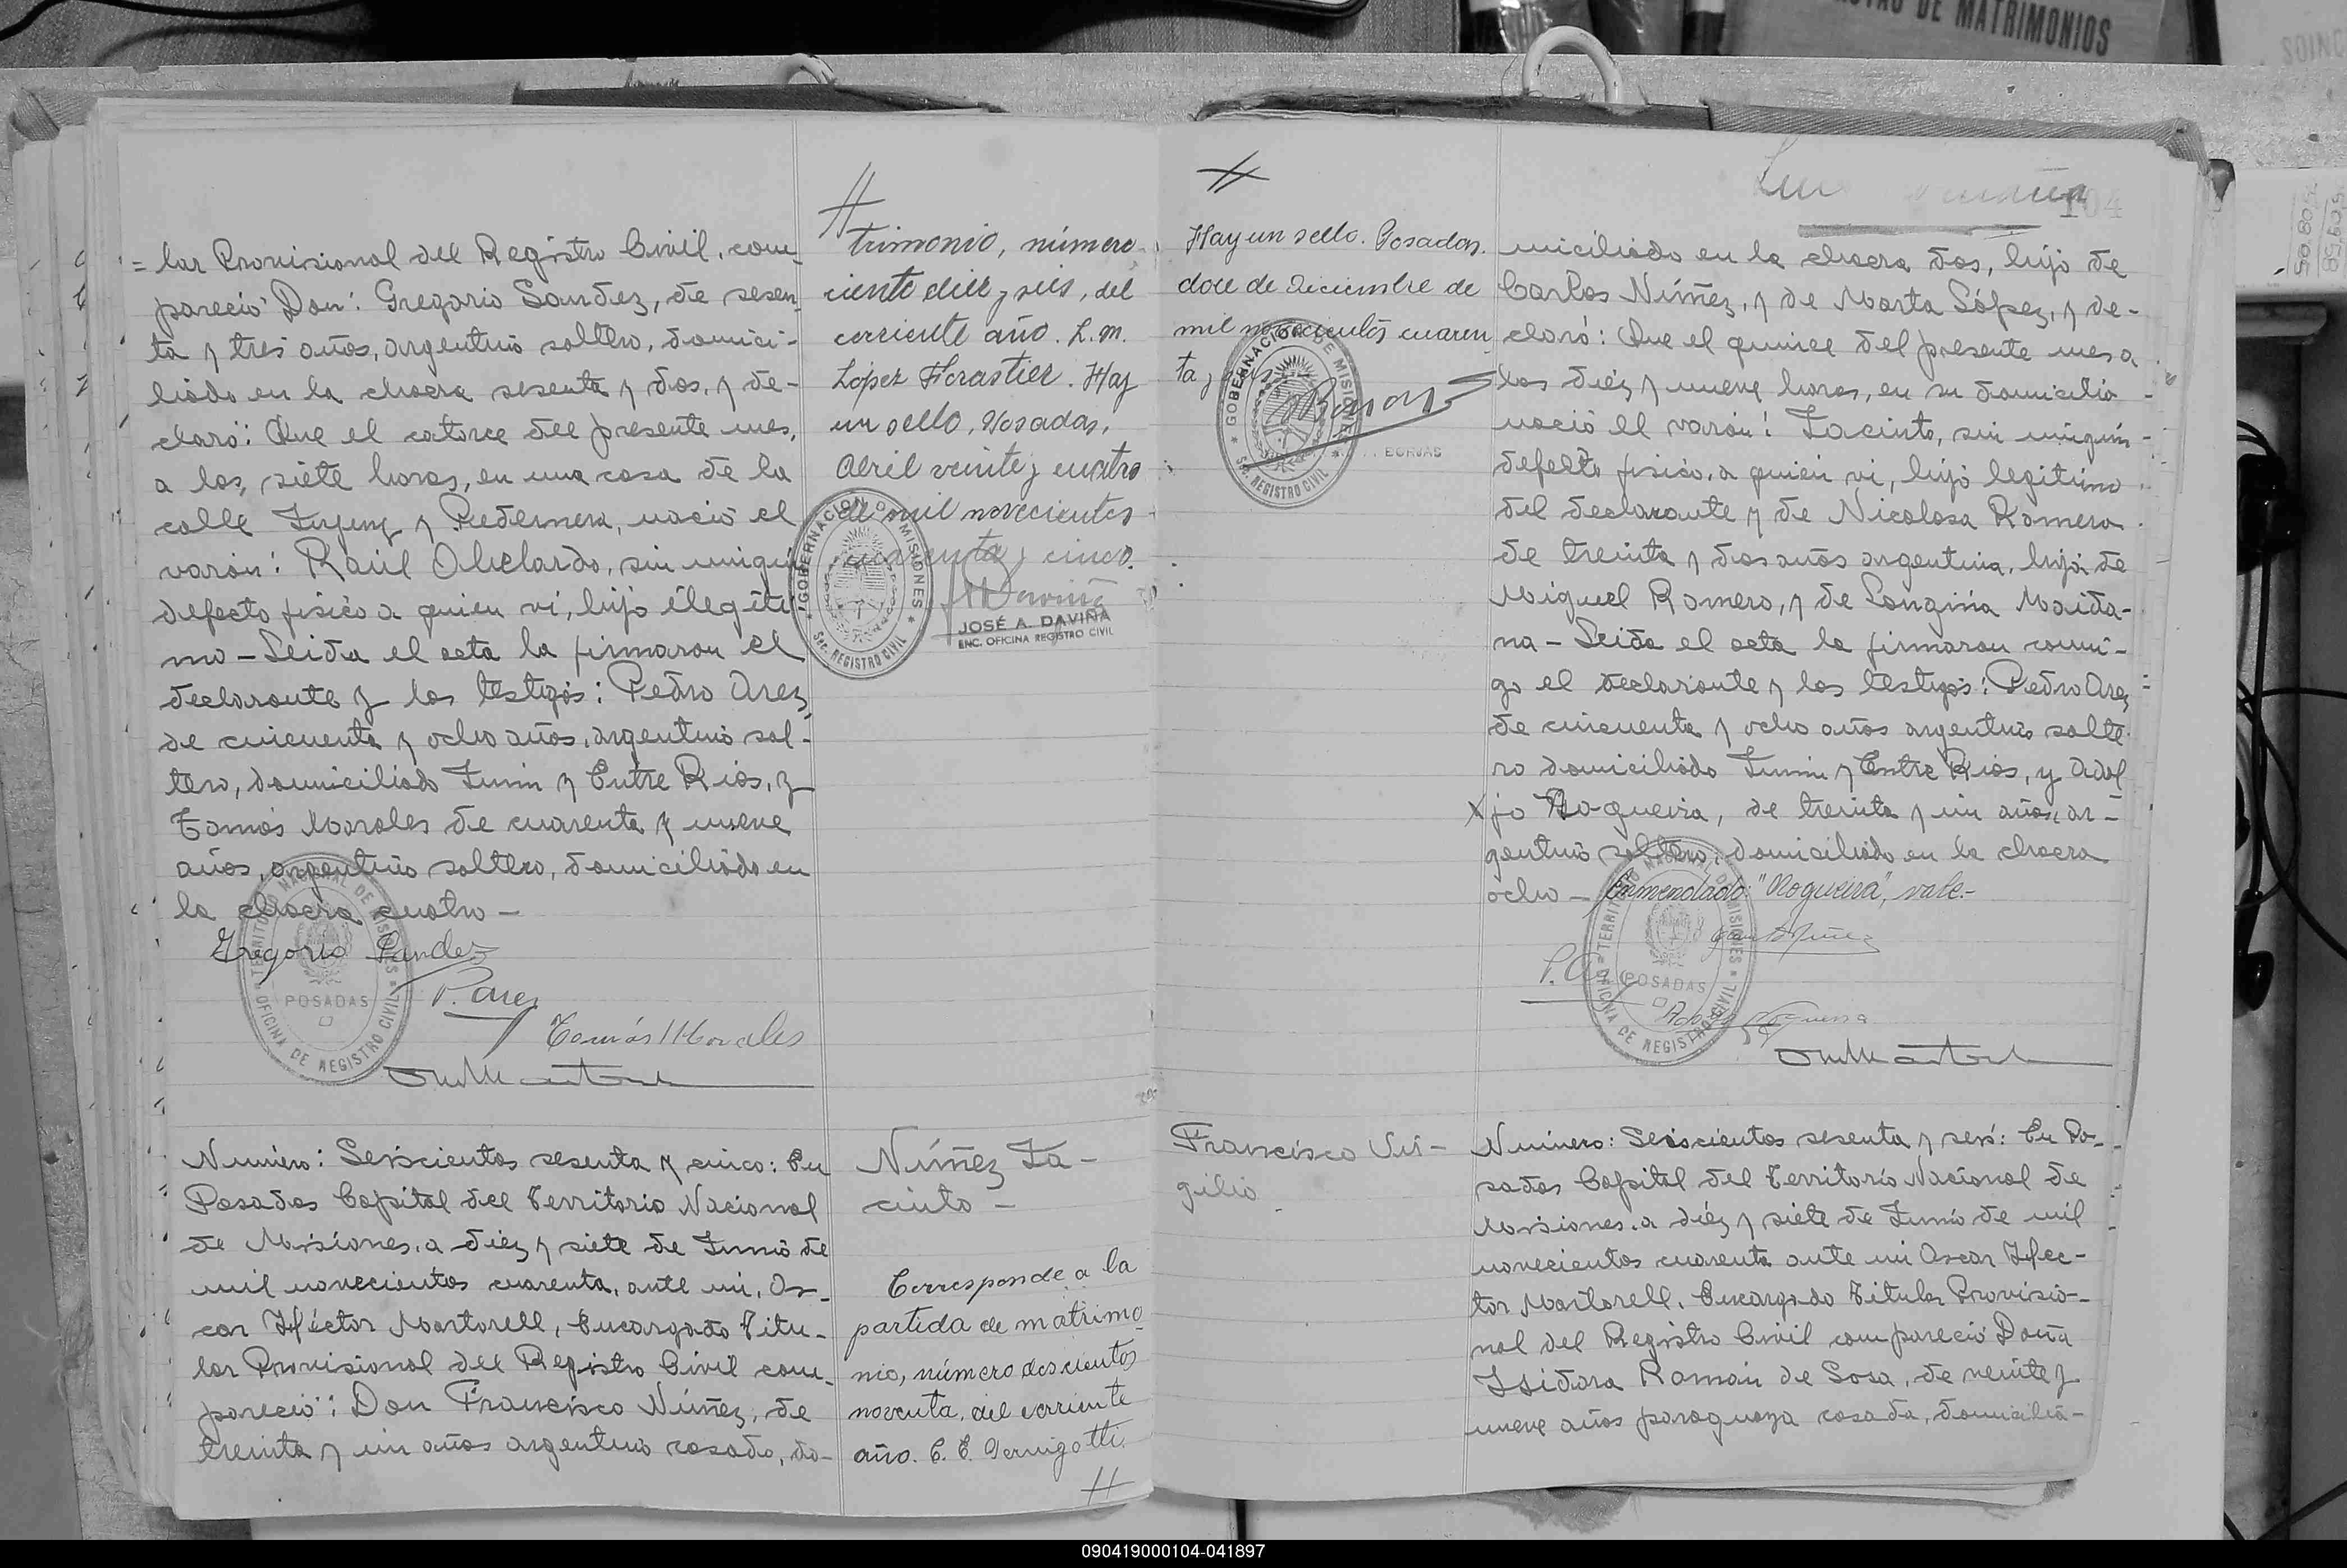 TRO DE MATRIMONIOS
= lar Provisional del Registro Civil, com-
pareció Don: Gregorio Sandez, de sesen-
ta y tres años, argentino soltero, domici-
liado en la chacra sesenta y dos, y de-
claró: Que el catorce del presente mes,
a las siete horas, en una casa de la
calle Jujuy y Pedernera, nació el
varón: Raúl Abelardo, sin ningún
defecto fisico a quien vi, hijo ilegiti
mo - Leida el acta la firmaron el
declarante y los testigos: Pedro Arez,
de cincuenta y ocho años, argentino sol-
tero, domiciliado Junin y Entre Rios, y
Tomás Morales de cuarenta y nueve
años, argentino soltero, domiciliado en
la chacra cuatro -
Gregorio Sandez
P. Arez
Tomás Morales
TERRITORIO NACIONAL DE MISIONES
POSADAS
OFICINA DE REGISTRO CIVIL
Numero: Seiscientos sesenta y cinco: En
Posadas Capital del Territorio Nacional
de Misiones, a diez y siete de Junio de
mil novecientos cuarenta, ante mi, Os-
car Héctor Martorell, Encargado Titu-
lar Provisional del Registro Civil com-
pareció: Don Francisco Núñez, de
treinta y un años argentino casado, do-
trimonio, número
ciento diez y seis, del
corriente año. L. M.
López Forastier. Hay
un sello, Posadas,
Abril veinte y cuatro
de mil novecientos
cuarenta y cinco.
GOBERNACION DE MISIONES
Sec. REGISTRO CIVIL
JOSÉ A. DAVIÑA
ENC. OFICINA REGISTRO CIVIL
Núñez Ja-
cinto -
Corresponde a la
partida de matrimo
nio, número doscientos
noventa, del corriente
año. C. E. Pernigotti.
Hay un sello. Posadas.
doce de Diciembre de
mil novecientos cuaren
ta y
GOBERNACION DE MISIONES
Sec. REGISTRO CIVIL
BORJAS
104
miciliado en la chacra dos, hijo de
Carlos Núñez, y de Marta López, y de-
claró: Que el quince del presente mes a
las diez y nueve horas, en su domicilio
nació el varón: Jacinto, sin ningún
defecto fisico, a quien vi, hijo legitimo
del declarante y de Nicolasa Romero
de treinta y dos años argentina, hija de
Miguel Romero, y de Longina Maida-
na - Leida el acta la firmaron conmi-
go el declarante y los testigos: Pedro Arez
de cincuenta y ocho años argentino solte
ro domiciliado Junin y Entre Rios, y Adol
fo Nogueira, de treinta y un años, ar-
gentino soltero, domiciliado en la chacra
ocho - Enmendado: "Nogueira", vale.-
TERRITORIO NACIONAL DE MISIONES
POSADAS
OFICINA DE REGISTRO CIVIL
Francisco Vir-
gilio
Numero: Seiscientos sesenta y seis: En Po-
sadas Capital del Territorio Nacional de
Misiones, a diez y siete de Junio de mil
novecientos cuarenta ante mi Oscar Hec-
tor Martorell, Encargado Titular Provisio-
nal del Registro Civil compareció Doña
Isidora Román de Sosa, de veinte y
nueve años paraguaya casada, domicilia-
090419000104-041897